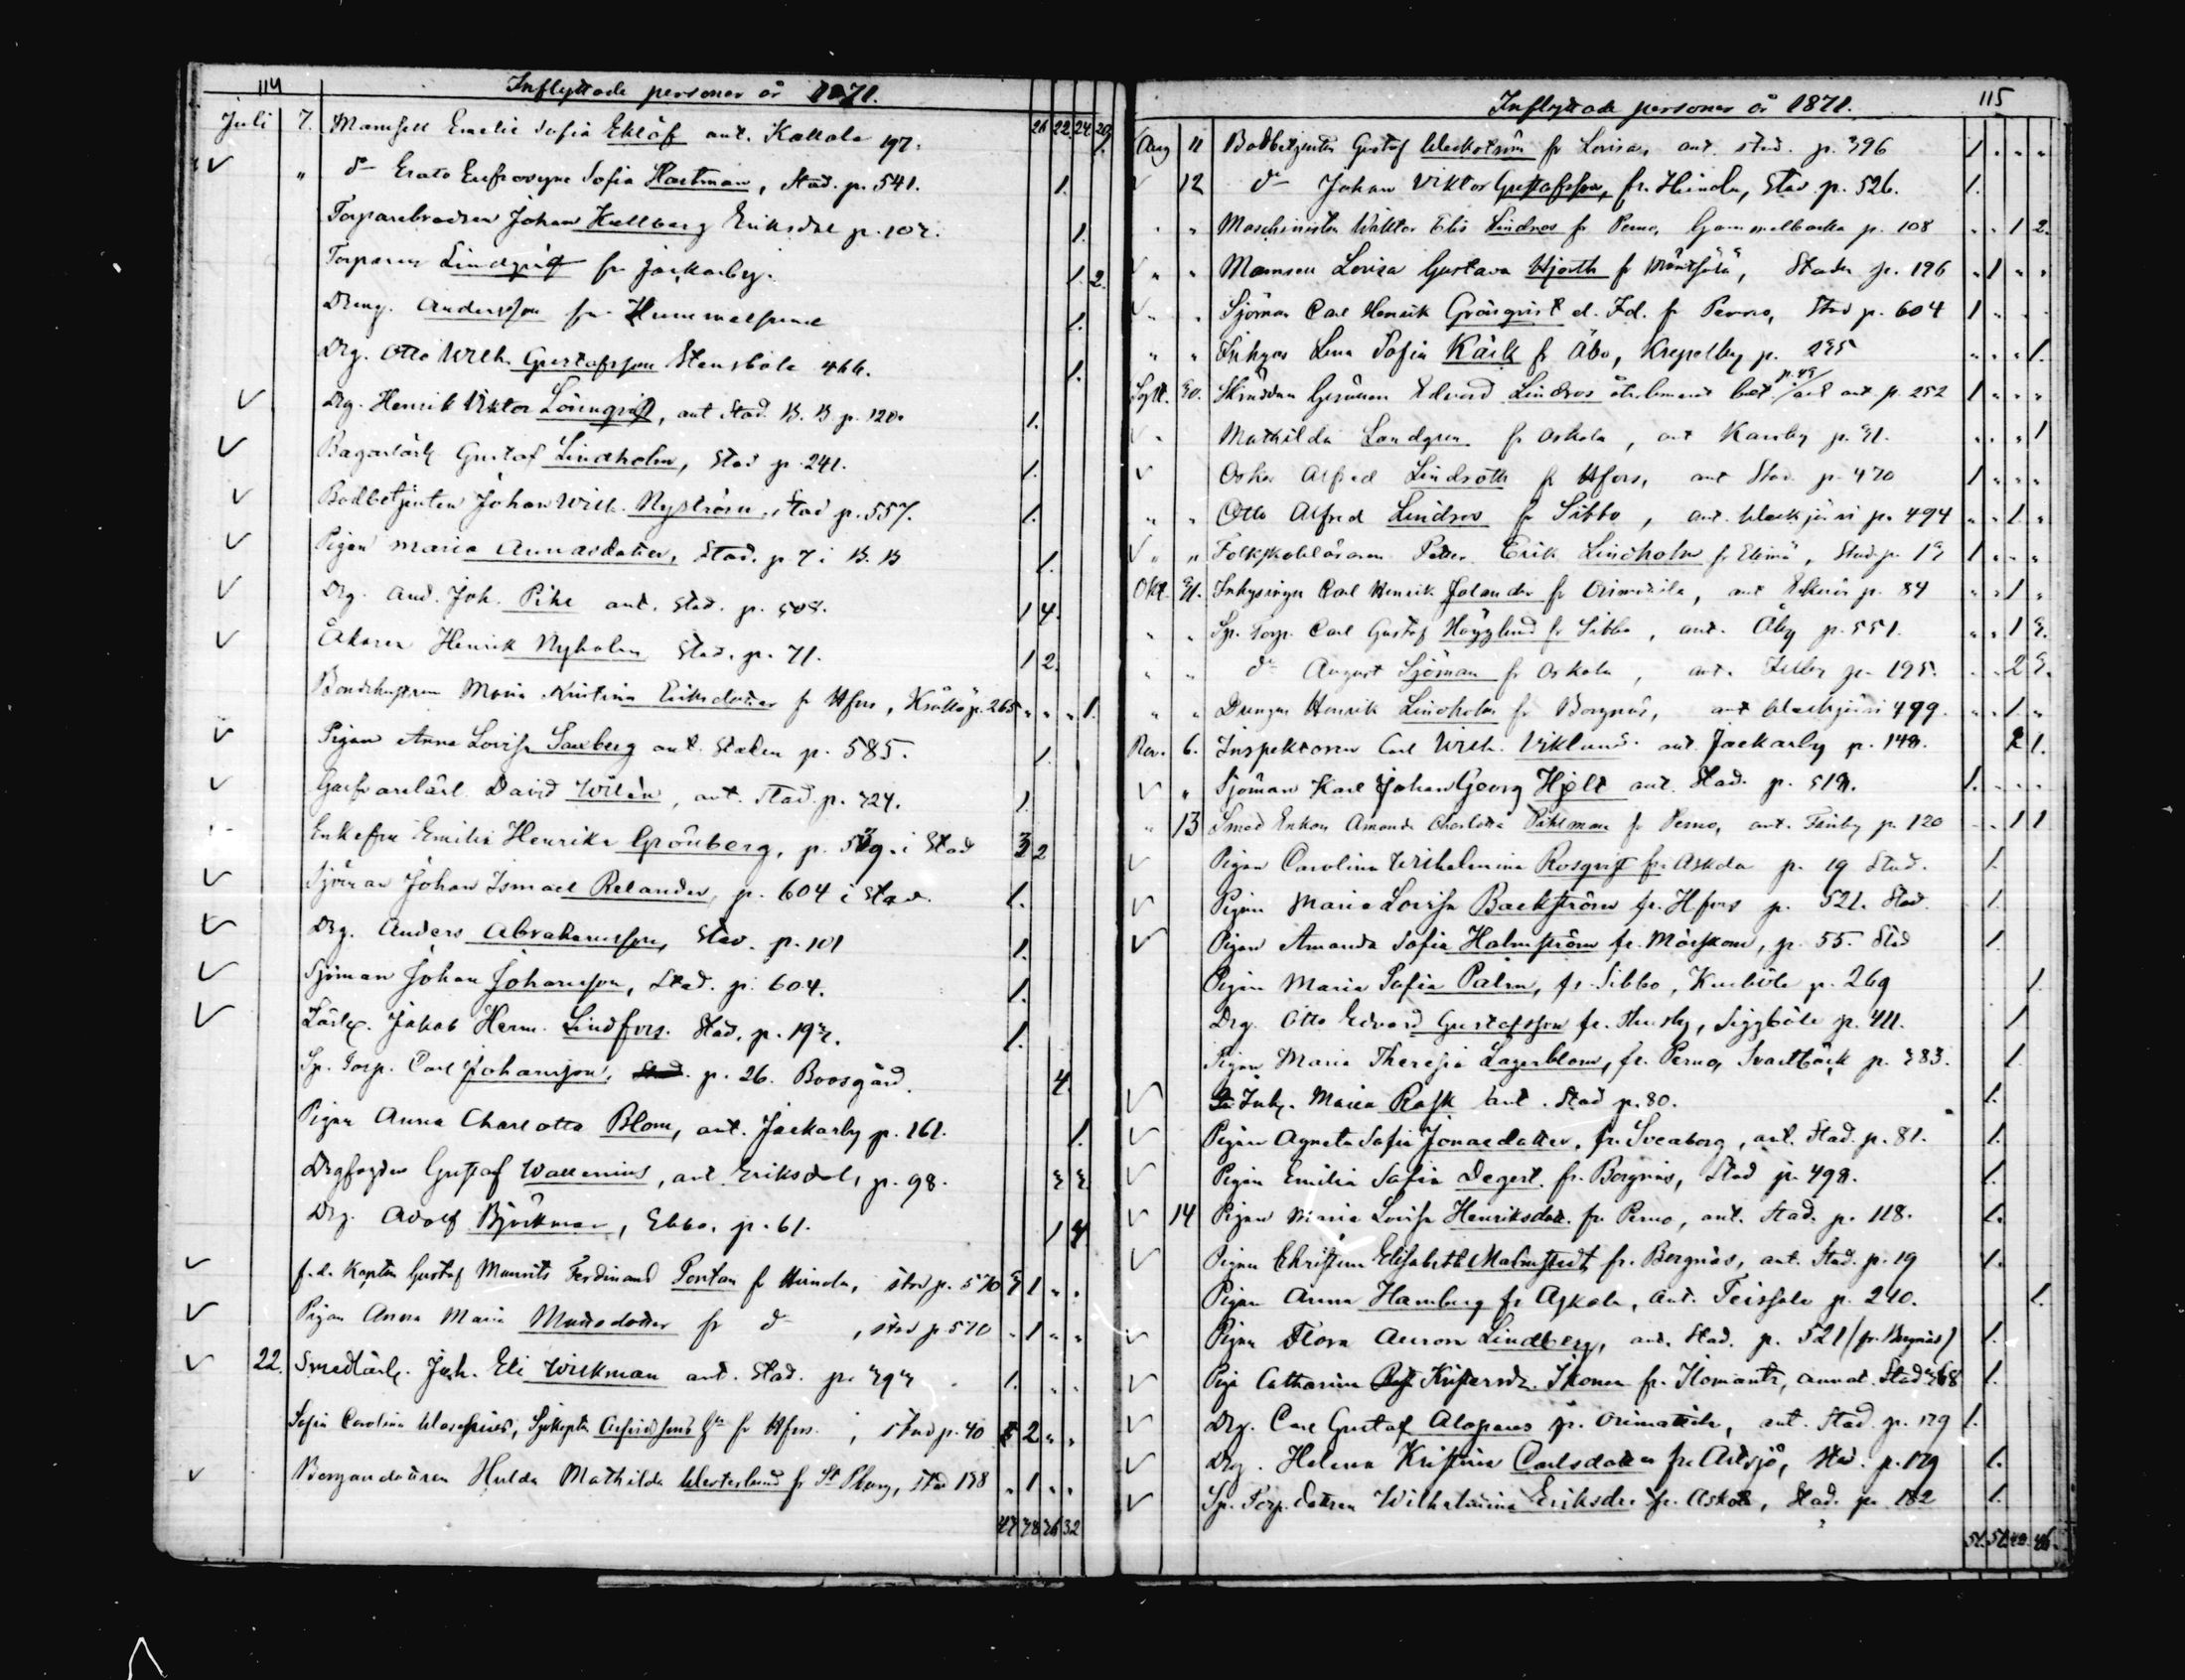 114 Inflyttade personer år 1871.
Juli 7. Mamsell Emelie Sofia Eklöf ant. Kallola 197. 26 22 24 29 1.
" d:o Erato Eufrosyne Sofia Hartman, Stad. p. 541. 1.
Torparebrodren Johan Kullberg Eriksdal p. 102. 1.
Torparen Lindqvist fr Jackarby. 1. 2.
Dreng. Andersson fr. Hummelsund 1.
Drg. Otto Wilh. Gustafsson Stensböle 466. 1.
Drg. Henrik Viktor Lönnqvist, ant Stad. B. B. p. 120. 1.
Bagarlärl. Gustaf Lindholm, Stad p. 241. 1.
Bodbetjenten Johan Wilh. Nyström, Stad p. 557. 1.
Pigan Maria Annasdotter, Stad. p. 7 i B. B 1.
Drg. And. Joh. Pihl ant. Stad. p. 508. 1 4.
Åkaren Henrik Nyholm Stad. p. 71. 1 2.
Bondehustrun Maria Kristina Eriksdotter fr Hfors, Kråkö p. 265 " " " 1.
Pigan Anna Lovisa Saxberg ant. Staden p. 585. 1.
Garfvarelärl. David Wilén, ant. Stad. p. 324. 1.
Enkefru Emilia Henrika Grönberg, p. 539. i Stad 3 2
Sjöman Johan Ismael Relander, p. 604 i Stad. 1.
Drg. Anders Abrahamsson, Stad. p. 101 1.
Sjöman Johan Johansson, Stad. p. 604. 1.
Lärl. Jakob Herm. Lindfors. Stad. p. 193. 1.
Sp. Torp. Carl Johansson, p. 26. Boosgård. 4.
Pigan Anna Charlotta Blom, ant. Jackarby p. 161. 1.
Drgfogden Gustaf Wallenius, ant. Eriksdal, p. 98. 3 3.
Drg. Adolf Björkman, Ebbo, p. 61. 1 4.
f. d. Kapten Gustaf Maurits Ferdinand Portan fr Heinola, Stad p. 570 3 1 " "
Pigan Anna Maria Mattsdotter fr d:o, Stad p. 570 " 1 " "
22. Smedlärl. Joh. Eli Wickman ant. Stad. p. 393 1. " "
Sofia Carolina, Sjökapten fr Hfors, Stad p. 40 2 " "
Hulda Mathilda Westerlund fr St Pburg, Stad 198 " 1 " "
47 38 36 32
Inflyttade personer år 1871. 115
Aug 11 Bodbetjenten Gustaf Weckström fr Lovisa, ant. Stad. p. 396 1 " " "
12 d:o Johan Viktor Gustafsson, fr. Heinola, Stad p. 526. 1.
" " Maschinisten Wiktor Elis Lindros fr Perno, Gammelbacka p. 108 " " 1 2.
" " Mamsell Lovisa Gustava Hjorth fr Mäntsälä, Staden p. 196 " 1 " "
" " Sjöman Carl Henrik Gräsqvist fr Perno, Stad p. 604 1 " " "
" " Inhyses Lena Sofia Käck fr Åbo, Kreppelby p. 235 " " " 1.
Sept. 30. Edvard Lindros p. 252 1 " " "
" Mathilda Landgren fr Askola, ant Karsby p. 31. " " " 1
Oskar Alfred Lindroth fr Hfors, ant Stad p. 470 1 " " "
" " Otto Alfred Lindros fr Sibbo, ant. Weckjärvi p. 494 " " 1 "
" " Folkskoleläraren Petter Erik Lindholm fr Elimä, Stad p. 13 1 " " "
Okt. 31. Inhysingen Carl Henrik Jolander fr Orimattila, ant p. 84 " " 1 "
" " Sp. Torp. Carl Gustaf Höyglund fr Sibbo, ant. Åby p. 551. " " 1 3.
" " d:o August Sjöman fr Askola, ant. p. 195. " " 2 3.
" " Drengen Henrik Lindholm fr Borgnäs, ant Weckjärvi 499. " " 1. "
Nov. 6. Inspektoren Carl Wilh. Viklund ant. Jackarby p. 148. 2 1.
" Sjöman Karl Johan Georg Hjelt ant. Stad. p. 518. 1. " " "
" 13 Smed Enkan Amanda Charlotta Pihlman fr Perno, ant. p. 120 " " 1 1
Pigan Carolina Wilhelmina Rosqvist fr. Askola p. 19 Stad. 1.
Pigan Maria Lovisa Backström fr. Hfors p. 521. Stad. 1.
Pigan Amanda Sofia Holmström fr. Mörskom, p. 55. Stad 1.
Pigan Maria Sofia Palm, fr. Sibbo, Kurböle p. 269 1.
Drg. Otto Edvard Gustafsson fr. Thusby, Siggböle p. 411. 1
Pigan Maria Theresia Lagerblom, fr. Perno, Svartbäck p. 383. 1.
Inh. Maria Rask ant. Stad p. 80. 1.
Pigan Agneta Sofia Jonaedotter, fr. Sveaborg, ant. Stad. p. 81. 1.
Pigan Emilia Sofia Degert. fr. Borgnäs, Stad p. 498. 1.
14 Pigan Maria Lovisa Henriksdott. fr. Perno, ant. Stad. p. 118. 1.
Pigan Christina Elisabeth Malmstedt, fr. Borgnäs, ant. Stad. p. 19 1.
Pigan Anna Hamberg fr Askola, ant. Teissala p. 240. 1.
Pigan Flora Aurora Lindberg, ant. Stad. p. 521 (fr. Borgnäs) 1.
Piga Catharina Ikonen fr. Ilomants, annot. Stad 368 1.
Drg. Carl Gustaf Alopaeus fr. Orimattila, ant. Stad. p. 179 1.
Drg. Helena Kristina Carlsdotter fr. Artsjö, Stad. p. 179 1.
Sp. Torp. dottren Wilhelmina Eriksdr fr. Askola, Stad. p. 182 1.
51. 51. 40. 46.